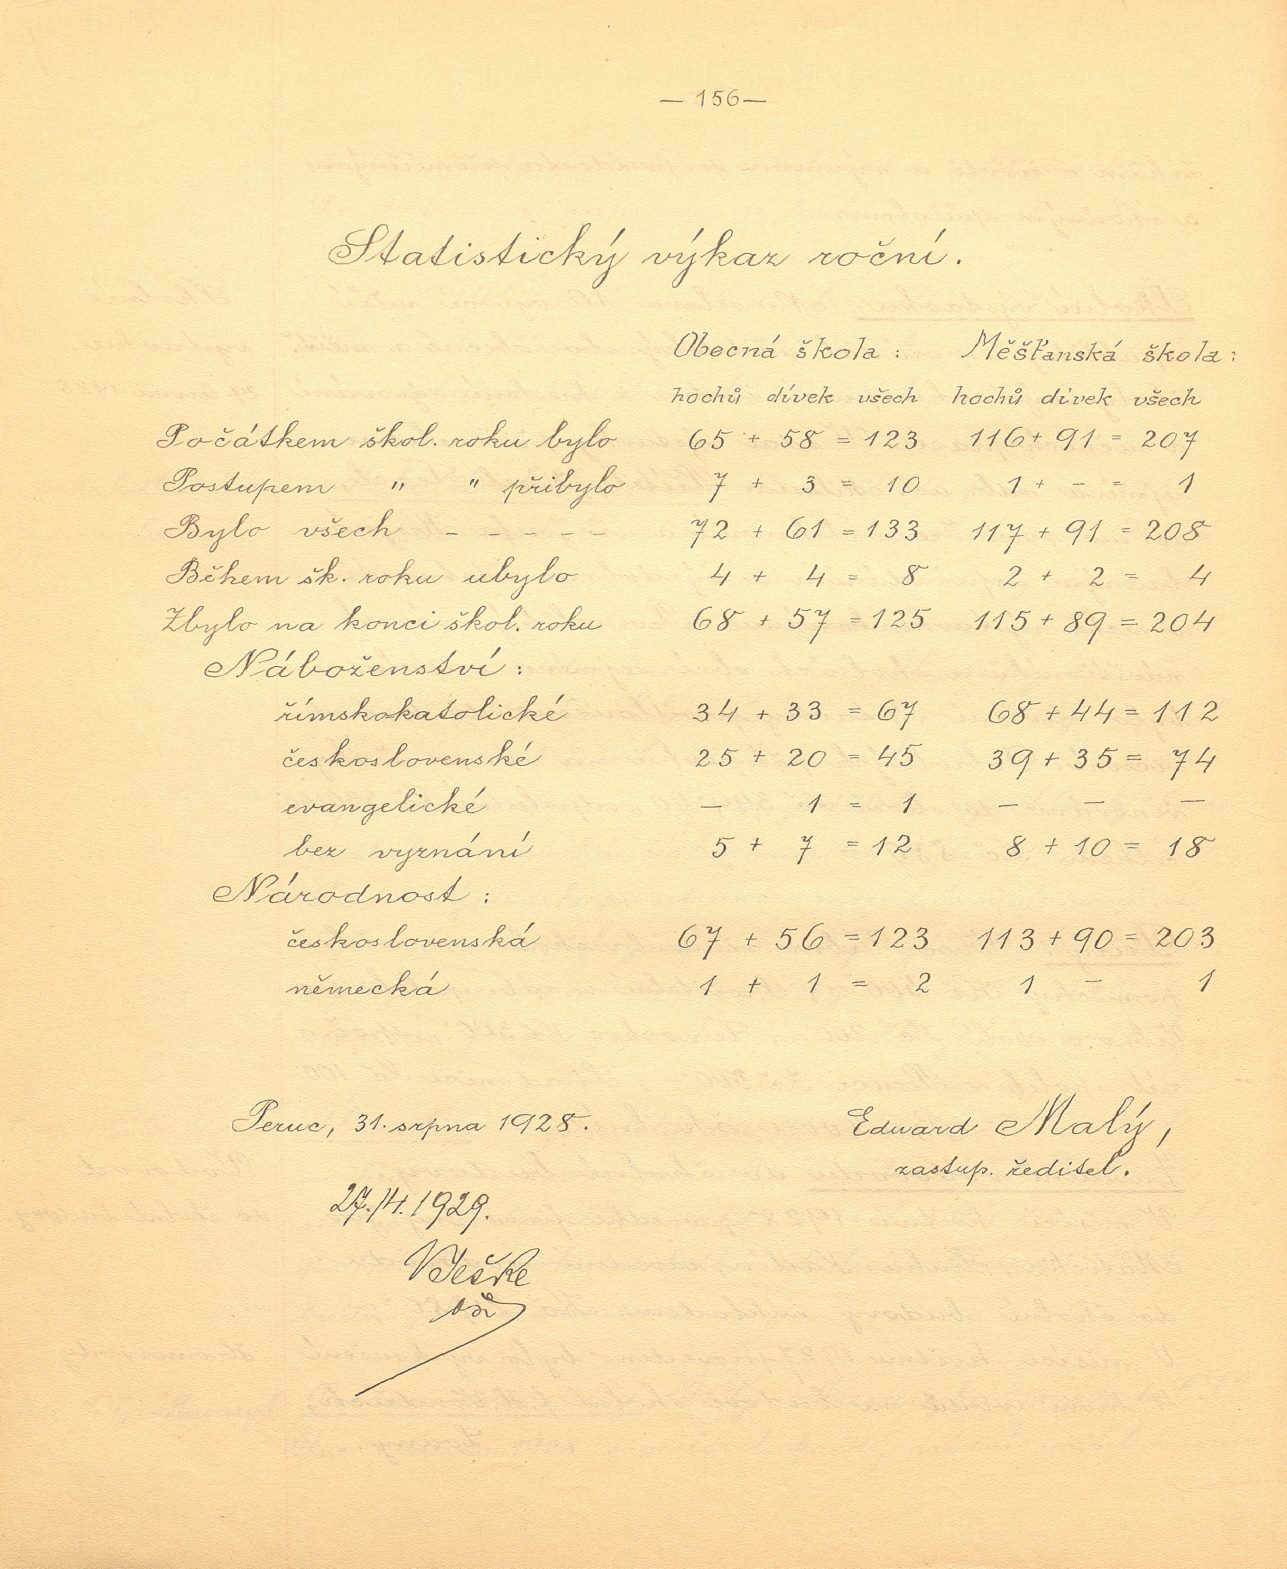 — 156 —
Statistický výkaz roční.
Obecná škola : Měšťanská škola :
hochů dívek všech hochů dívek všech
Počátkem škol. roku bylo 65 + 58 = 123 116 + 91 = 207
Postupem " " přibylo 7 + 3 = 10 1 + - = 1
Bylo všech - - - - - 72 + 61 = 133 117 + 91 = 208
Během šk. roku ubylo 4 + 4 = 8 2 + 2 = 4
Zbylo na konci škol. roku 68 + 57 = 125 115 + 89 = 204
Náboženství :
římskokatolické 34 + 33 = 67 68 + 44 = 112
československé 25 + 20 = 45 39 + 35 = 74
evangelické — 1 = 1 — — —
bez vyznání 5 + 7 = 12 8 + 10 = 18
Národnost :
československá 67 + 56 = 123 113 + 90 = 203
německá 1 + 1 = 2 1 - 1
Peruc, 31. srpna 1928. Edward Malý,
zastup. ředitel.
27./4. 1929.